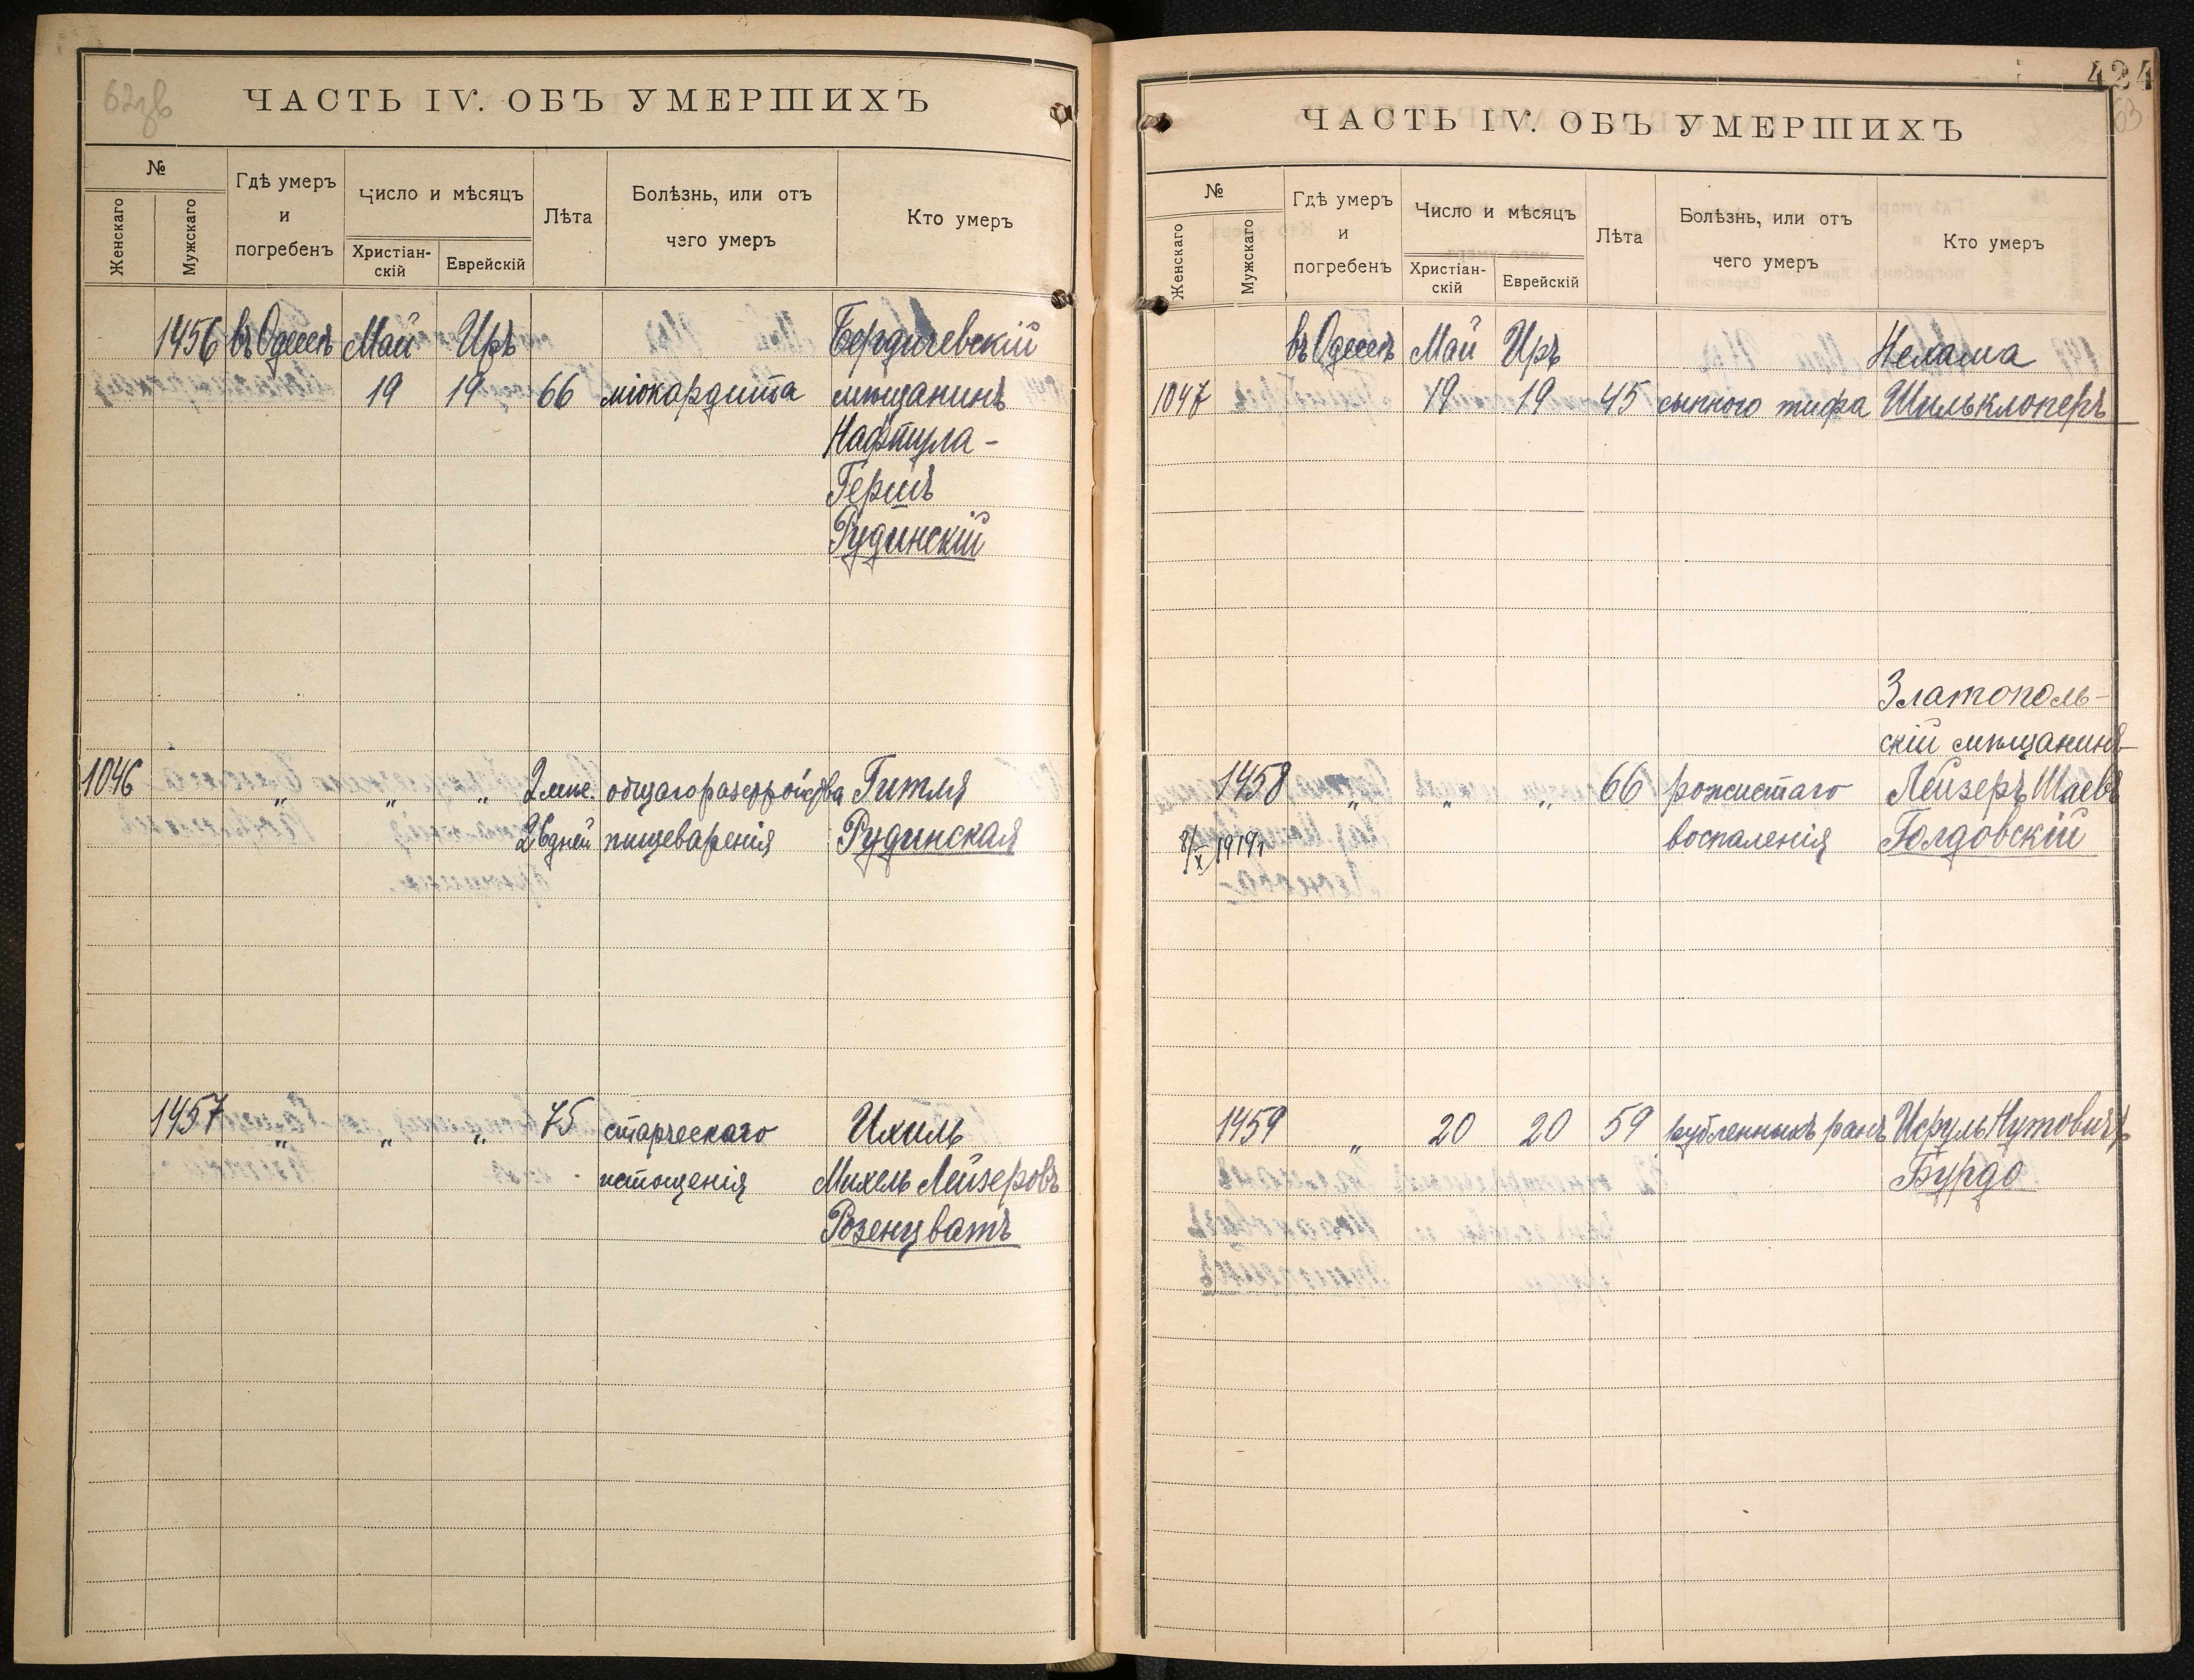 62зв
ЧАСТЬ IV. ОБЪ УМЕРШИХЪ
№
Женскаго
Мужскаго
Гдѣ умеръ
и
погребенъ
Число и мѣсяцъ
Христіан-
скій
Еврейскій
Лѣта
Болѣзнь, или отъ
чего умеръ
Кто умеръ
1456 въ Одессѣ Май Иръ Бердичевскій
19 19 66 міокардита мѣщанинъ
Нафтула-
Гершъ
Рудинскій
1046 " " " 2 мѣс. общаго разстройства Гитля
26 дней пищеваренія Рудинская
1457 " " " 75 старческаго Ихиль
истощенія Михель Лейзеровъ
Розенцватъ
424
63
ЧАСТЬ IV. ОБЪ УМЕРШИХЪ
№
Женскаго
Мужскаго
Гдѣ умеръ
и
погребенъ
Число и мѣсяцъ
Христіан-
скій
Еврейскій
Лѣта
Болѣзнь, или отъ
чего умеръ
Кто умеръ
въ Одессѣ Май Иръ Нехама
1047 19 19 45 сыпного тифа Шильклоперъ
Златополь-
скій мѣщанинъ
1458 " " " 66 рожистаго Лейзеръ Шаевъ
8/X 1919г воспаленія Голдовскій
1459 " 20 20 59 рубленныхъ ранъ Исруль Нутовичъ
Бурдо